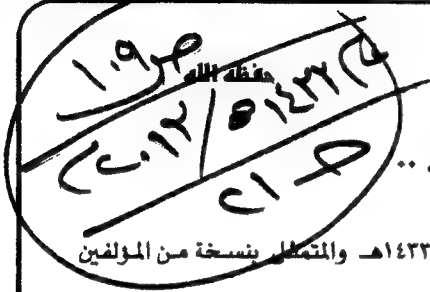 ص ١٠٩
حفظه الله
١٤٣٣ هـ / ٢٠١٢
..
١٤٣٣هـ والمتمثل بنسخة من المؤلفين